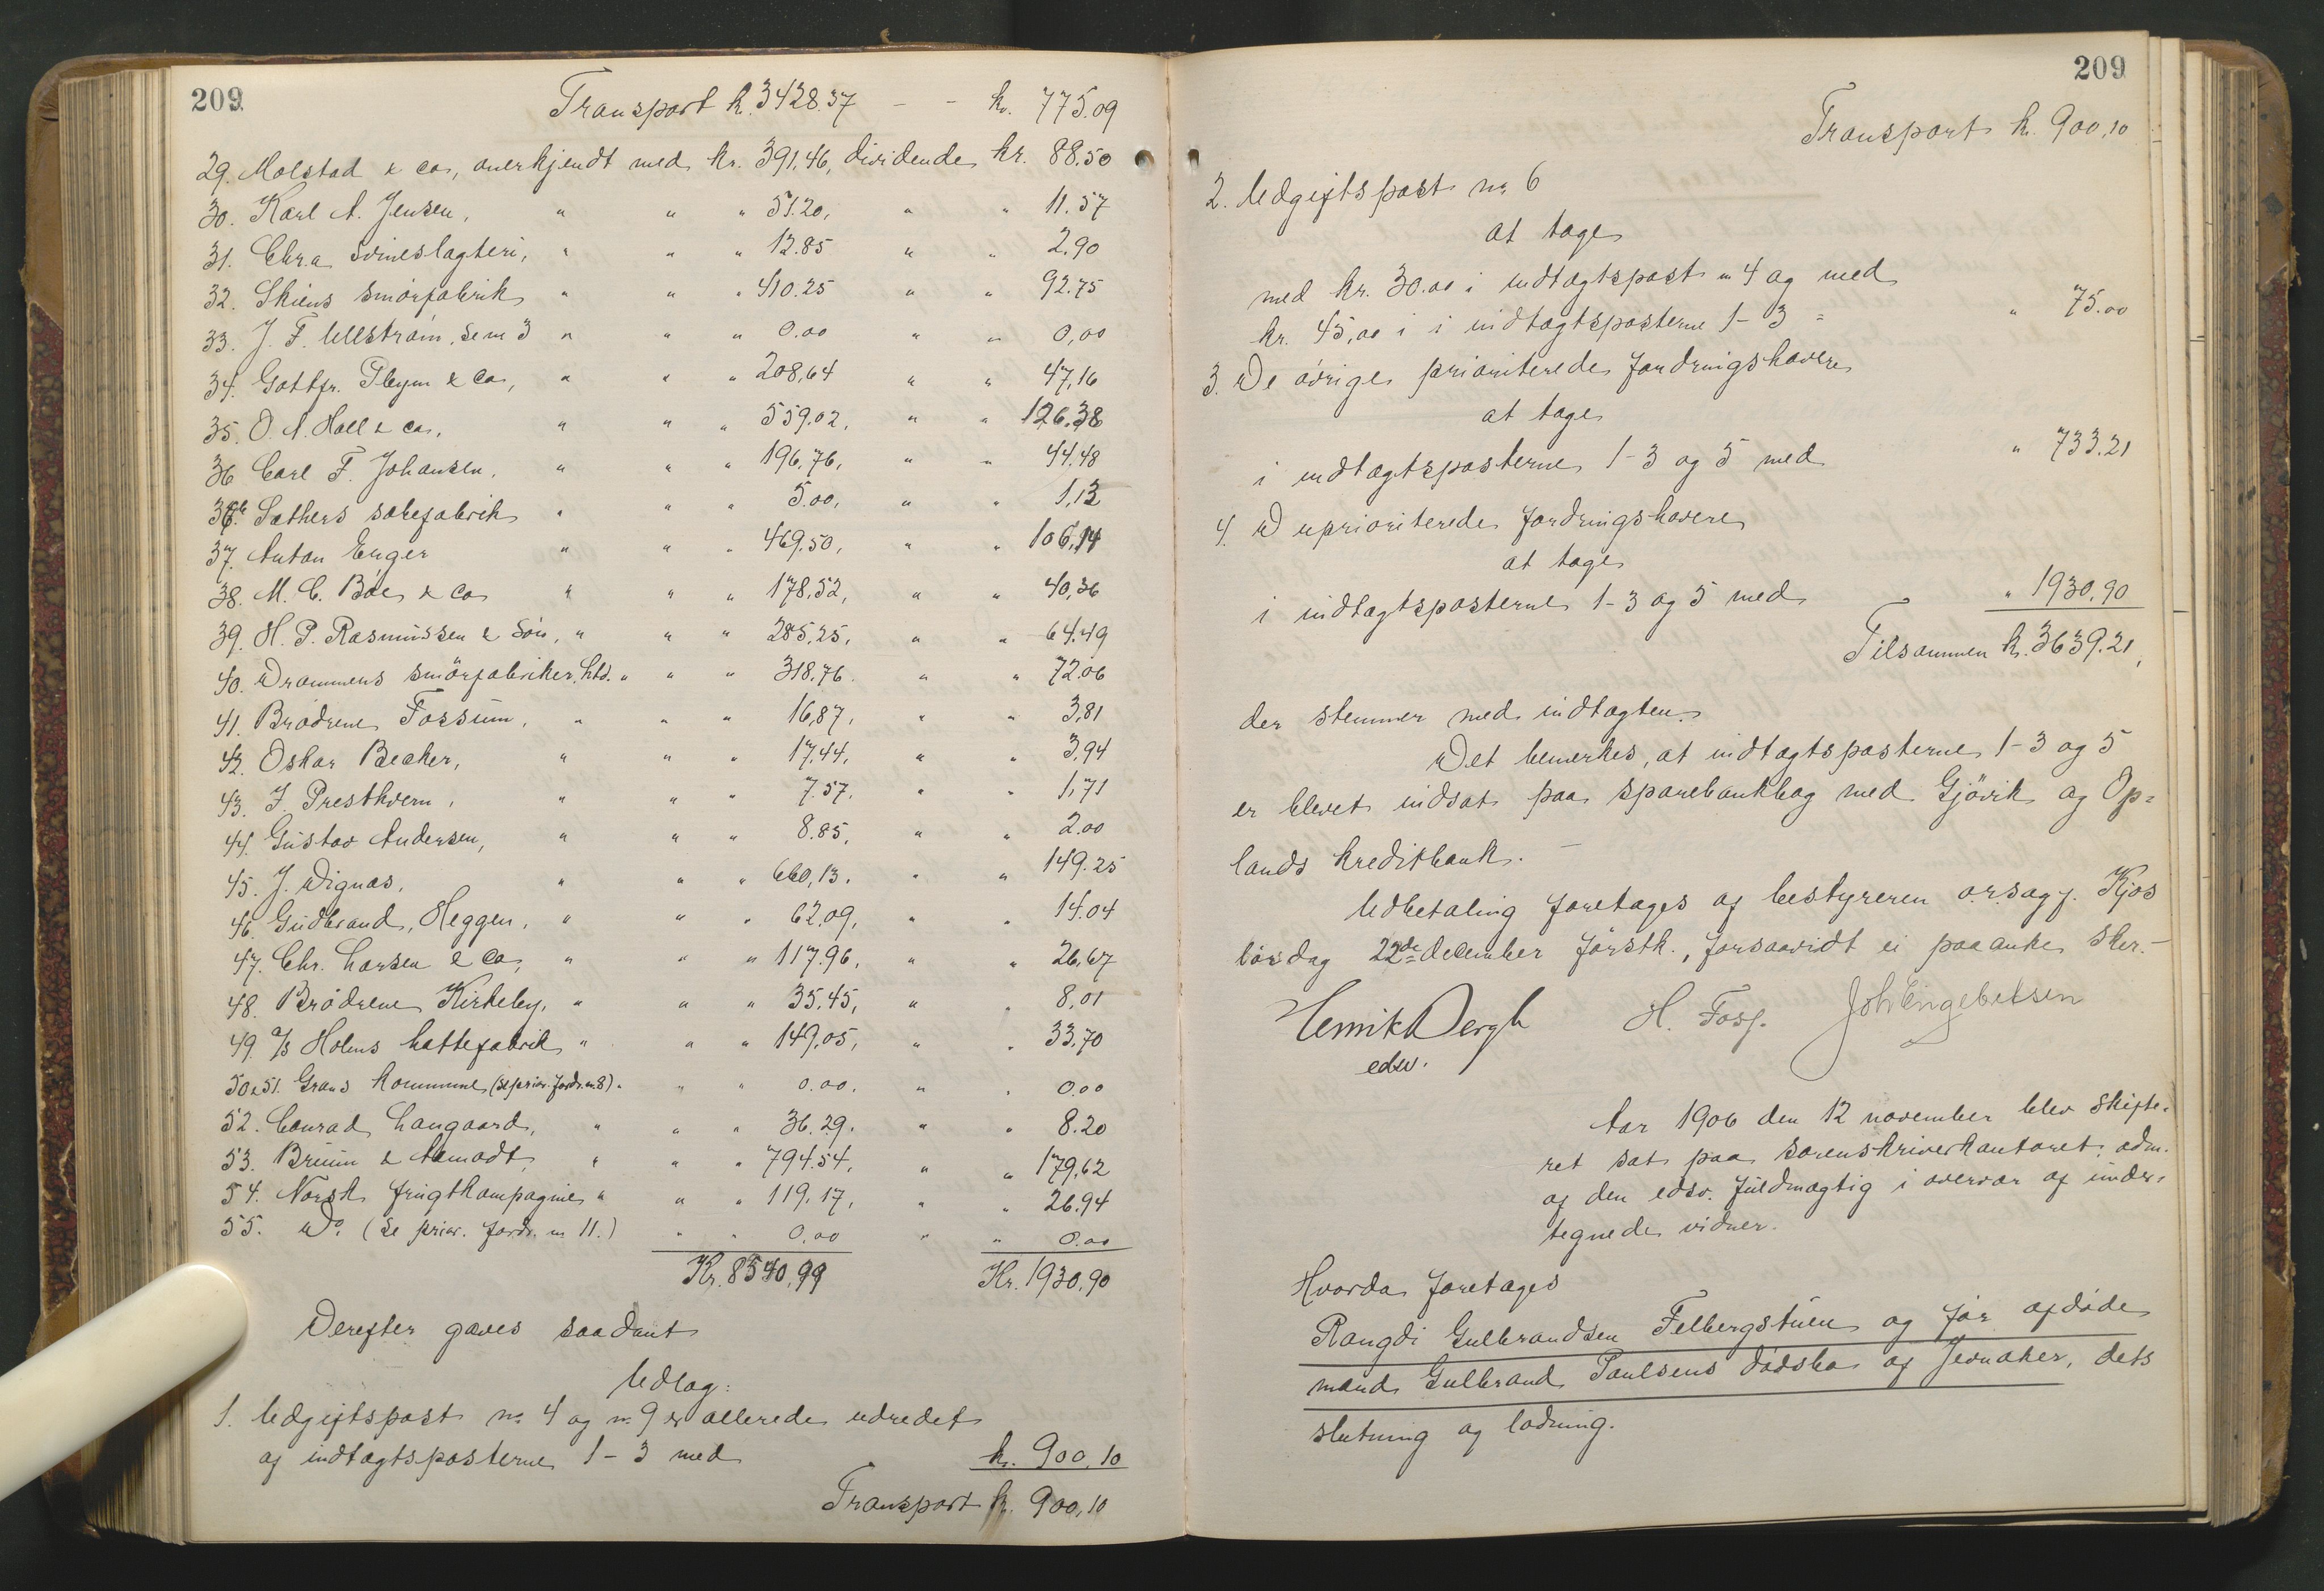 209
Transport kr. 3428.37 - - kr. 775.09
29. Molstad & co, anerkjendt med kr. 391,46, dividende kr. 88.50
30. Karl A. Jensen, " " " 51.20, " " 11.57
31. Chr.a svineslagteri, " " " 12.85 " " 2.90
32. Skiens smörfabrik " " " 410.25 " " 92.75
33. J. F. Ullström, se nr 3 " " " 0.00 " " 0,00
34. Gottfr. Pleym & Co, " " " 208,64 " " 47,16
35. O. A. Hall & co, " " " 559.02, " " 126.38
36 Carl F. Johansen, " " " 196,76, " " 44,48
36b. Sæthers sæbefabrik " " " 5.00, " " 1,13
37. Anton Enger " " " 469,50, " " 106,14
38. M. C. Böe & Co " " " 178,52, " " 40,36
39. H. P. Rasmussen & Sön, " " " 285,25, " " 64.49
40. Drammens smörfabriker, Ltd. " " " 318,76. " " 72.06
41. Brödrene Fossum, " " " 16,87, " " 3,81
42. Oskar Becker, " " " 17,44, " " 3,94
43. J. Presthvern, " " " 7.57, " " 1,71
44. Gustav Andersen, " " " 8.85, " " 2.00
45. J. Dignæs, " " " 660,13. " " 149.25
46. Gudbrand, Heggen, " " " 62.09, " " 14.04
47. Chr. Larsen & Co, " " " 117.96, " " 26,67
48. Brödrene Kirkeby, " " " 35.45, " " 8,01
49. A/S Holms hattefabrik " " " 149,05, " " 33,70
50 & 51. Grans kommune (se prior. fordr. nr 8) " " " 0.00. " " 0.00
52. Conrad Langaard, " " " 36.29. " " 8.20
53. Bruun & Aamodt, " " " 794.54, " " 179,62
54. Norsk frugtkompagnie " " " 119,17, " " 26.94
55. Do (Se prior. fordr. nr 11.) " " 0,00 " " 0.00
Kr. 8540,99 Kr. 1930,90
Derefter gaves saadant
Udlæg:
1. Udgiftspost nr 4 og nr 9 er allerede udredet
af indtægtsposterne 1-3 med kr. 900,10
Transport kr. 900,10
209
Transport kr. 900,10
2. Udgiftspost nr 6
at tage
med kr. 30.00 i indtægtspost nr 4 og med
kr. 45,00 i i indtægtsposterne 1-3 = " 75.00
3. De övrige prioriterede fordringshavere
at tage
i indtægtsposterne 1-3 og 5 med " 733.21
4. D uprioriterede fordringshavere
at tage
i indtægtsposterne 1-3 og 5 med " 1930,90
Tilsammen kr. 3639.21,
der stemmer med indtægten.
Det bemerkes, at indtægtsposterne 1-3 og 5
er blevet indsat paa sparebankbog med Gjövik og Op=
lands kreditbank. -
Udbetaling foretages af bestyreren o.r.sagf. Kjos
lördag 22de december förstk., forsaavidt ei paaanke sker. -
Henrik Bergh H. Foss. Joh Engebretsen
edsv.
Aar 1906 den 12 november blev skifte-
ret sat paa sorenskriverkontoret, adm.
af den edsv. fuldmægtig i overvær af under-
tegnede vidner.
Hvorda foretages
Rangdi Gulbrandsen Felbergstuen og för afdöde
mand Gulbrand Paulsens dödsbo af Jevnaker, dets
slutning og lodning.